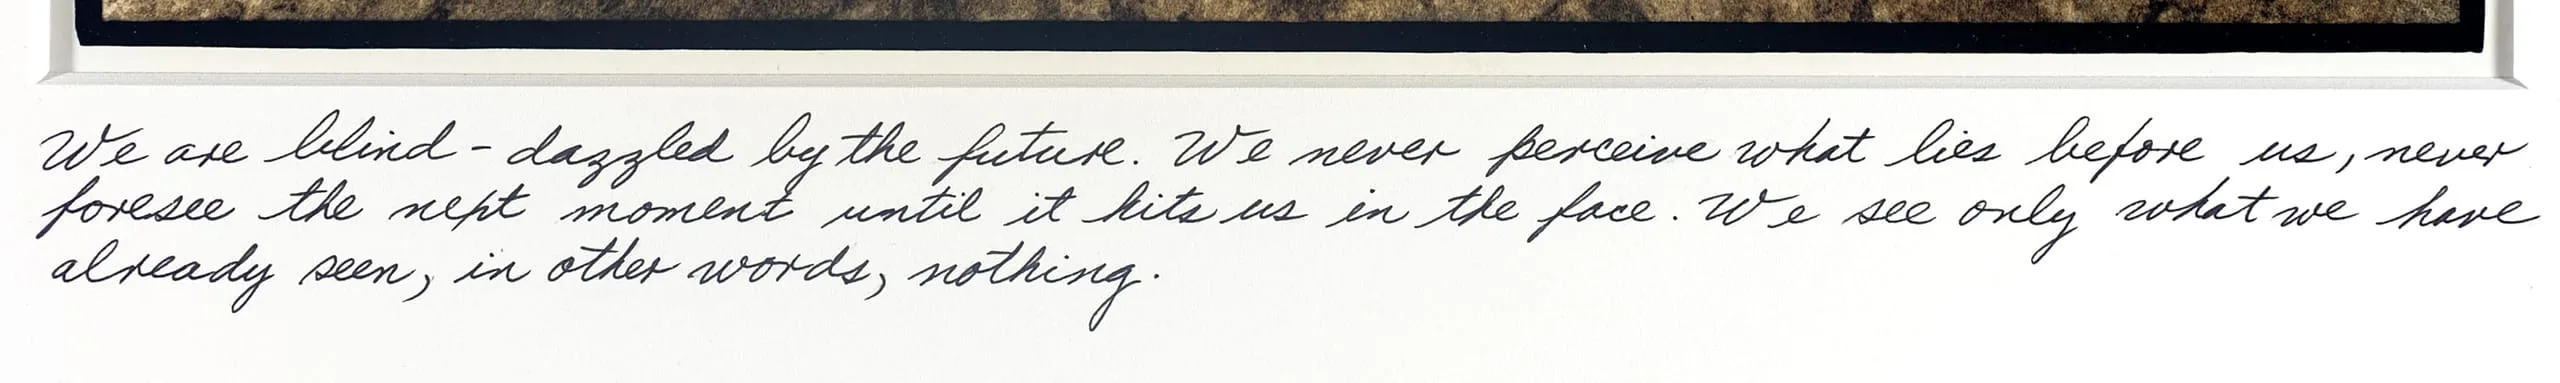 We are blind - dazzled by the future. We never perceive what lies before us, never
foresee the next moment until it hits us in the face. We see only what we have
already seen, in other words, nothing.